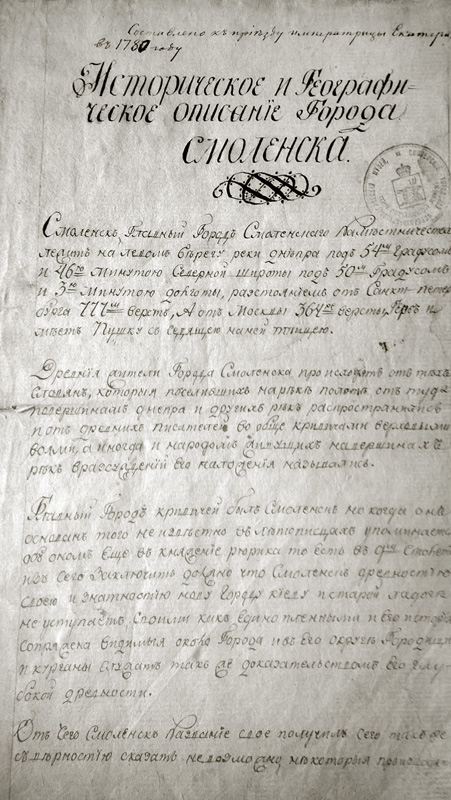 Составлено къ приѣзду императрицы Екатери
въ 1780 году
Историческое и Географи-
ческое описанiе Города
Смоленска.
Смоленскъ Главный Городъ Смоленскаго Намѣстничества
лежитъ на левомъ берегу реки днѣпра подъ 54мъ градусомъ
и 46ю минутою Северной широты подъ 50мъ градусомъ
и 3ю минутою долготы, разстоянiемъ отъ Санкт-петер
бурга 777ми верстъ, а отъ Москвы 364 версты, Гербъ и
мѣетъ Пушку съ седящею на ней птицею.
Древнiя жители Города Смоленска происходятъ отъ техъ
Славянъ, которыя поселившихъ на рѣке полотѣ отъ туда
по вершинамъ днепра и другихъ рѣкъ распространились
и отъ древнихъ писателей во обще кривичами верховными
волми, а иногда и народомъ живущихъ на вершинахъ
рѣкъ вразсужденiи его положенiя назывались.
Главный Городъ кривичей былъ Смоленскъ но когда онъ
основанъ того не извѣстно въ лѣтописцахъ упоминается
объ ономъ еще въ княженiе рюрика то есть въ 9мъ
изъ сего заключить должно что Смоленскъ древностiю
своею и знатностiю между Городу кiеву и старой ладоге
не уступаетъ
сопряжена видимыя около Города и въ его округе Городища
и курганы служатъ такъ же доказательствомъ его глу
бокой древности.
Отъ чего Смоленскъ названiе свое получилъ сего такъ же
съ вѣрностiю сказать не возможно нѣкоторыя